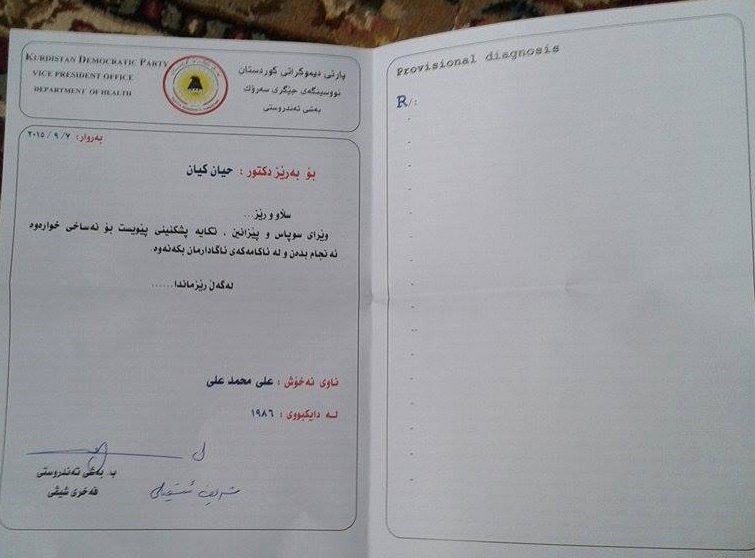 KURDISTAN DEMOCRATIC PARTY
VICE PRESIDENT OFFICE
DEPARTMENT OF HEALTH
پارتی دیموکراتی کوردستان
نووسینگەی جێگری سەرۆك
بەشی تەندروستی
بەروار: ٢٠١٥ / ٩ / ٧
بۆ بەرێز دکتور : حیان کیان
سلاو و رێز...
وێرای سوپاس و پێزانین ، تکایە پشکنینی پێویست بۆ نەساخی خوارەوە
ئە نجام بدەن و لە ئاکامەکەی ئاگادارمان بکەنەوە.
لەگەڵ رێزماندا......
ناوی نەخۆش : علی محمد علی
لـە دایکبووی : ١٩٨٦
ب. بەشی تەندروستی
فەخری شیڤی
Provisional diagnosis
R/: